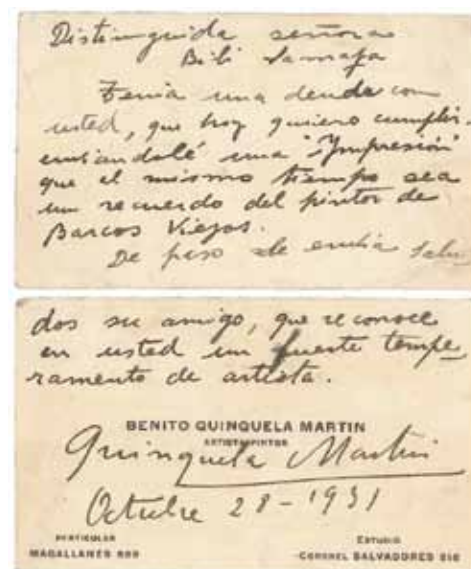 Distinguida señora
Bibi
Tenia una deuda con
usted, que hoy quiero cumplir
enviandolé una "Ympresión"
que al mismo tiempo sea
un recuerdo del pintor de
Barcos Viejos.
De paso le envia salu
dos su amigo, que reconoce
en usted un fuerte tempe
ramento de artista.
BENITO QUINQUELA MARTIN
ARTISTA PINTOR
Quinquela Martin
Octubre 28-1931
PARTICULAR
MAGALLANES 889
ESTUDIO
CORONEL SALVADORES